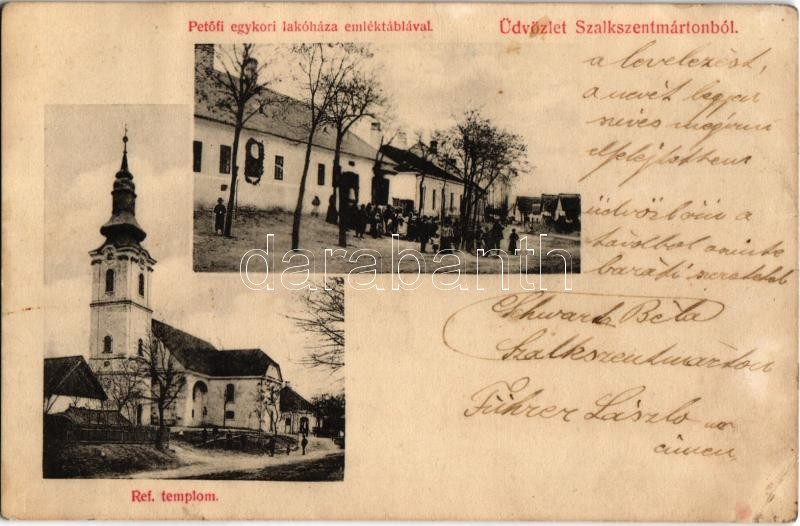 Petőfi egykori lakóháza emléktáblával.
Üdvözlet Szalkszentmártonból.
a levelezést,
a nevét legyen
szíves megírni
elfelejtettem
üdvözlöm a
távolból
baráti szeretettel
Schwartz Béla
Szalkszentmárton
Führer László
címen
darabanth.com
Ref. templom.